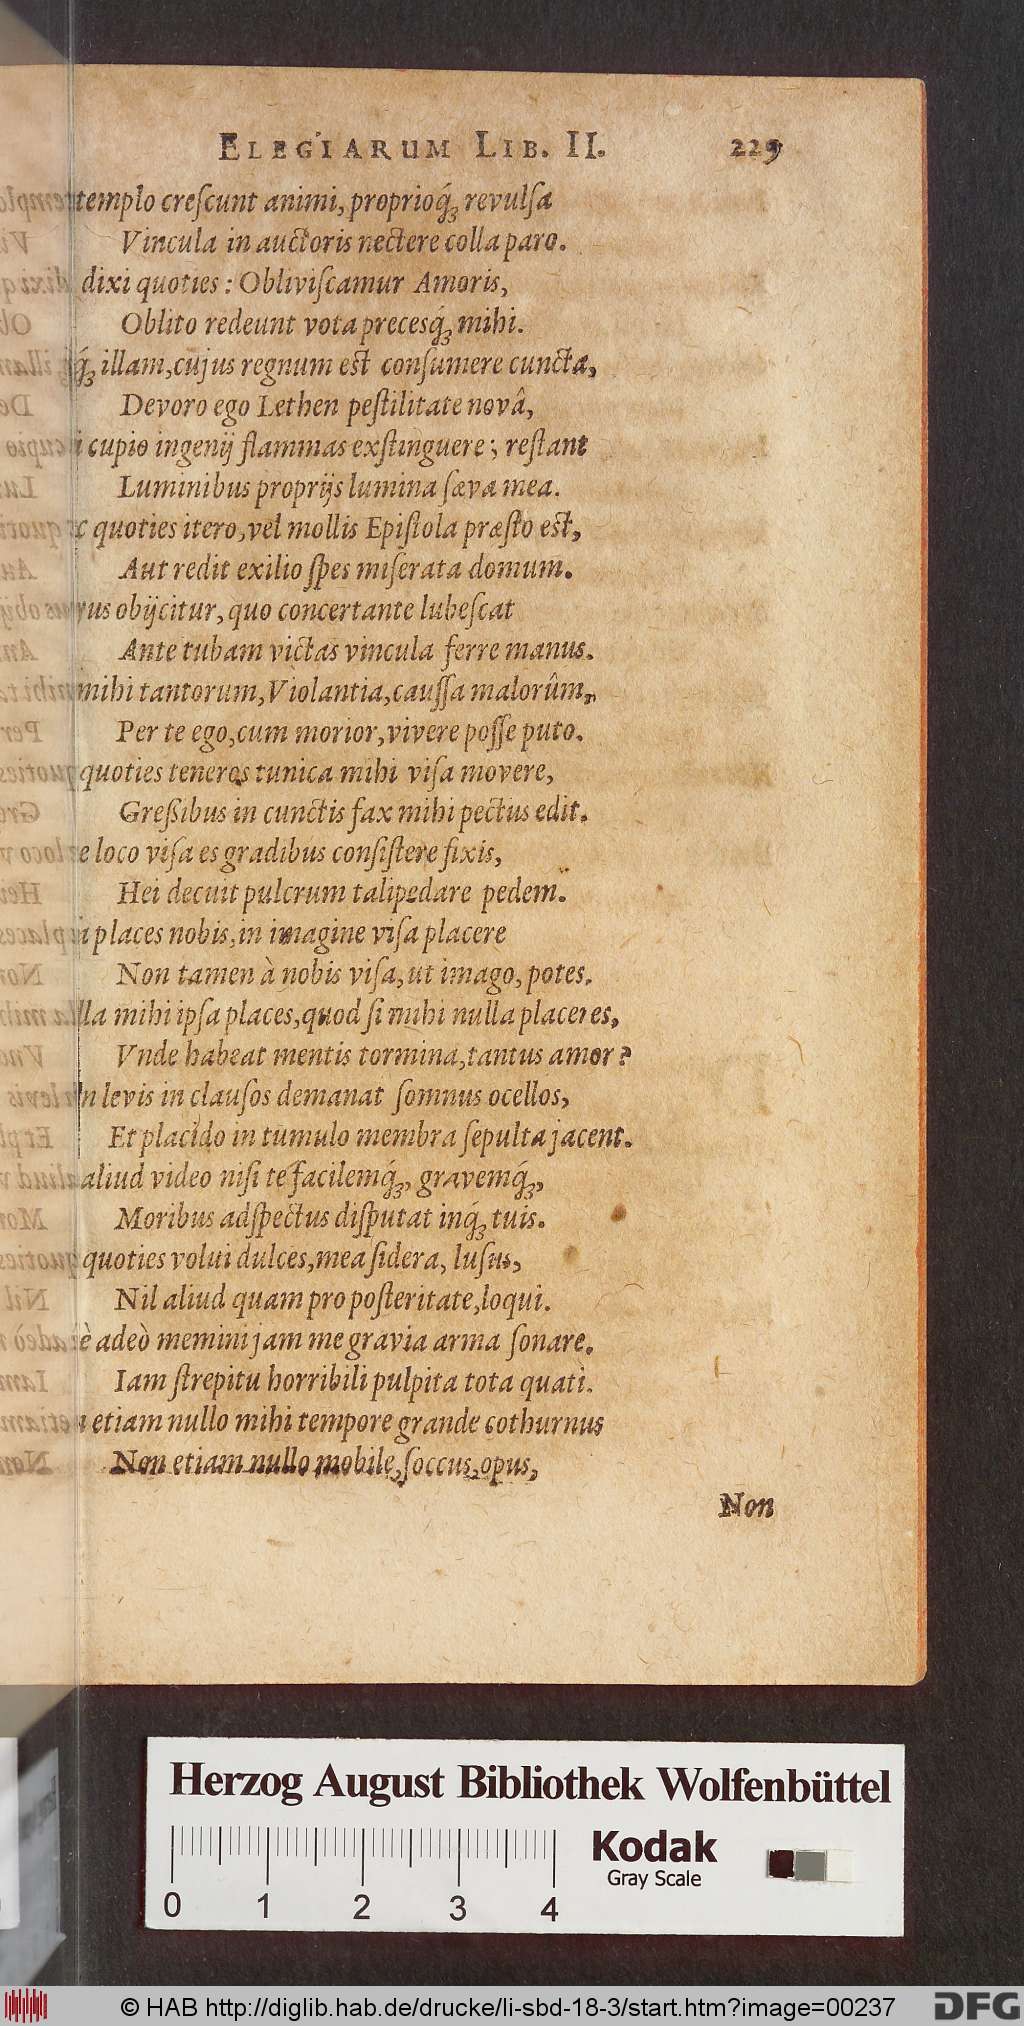 ELEGIARUM LIB. II. 229
templo creſcunt animi, proprioq́ꝫ revulſa
Vincula in auctoris nectere colla paro.
dixi quoties: Obliviſcamur Amoris,
Oblito redeunt vota precesq́ꝫ mihi.
q́ꝫ illam, cujus regnum est conſumere cuncta,
Devoro ego Lethen peſtilitate novâ,
cupio ingenij flammas exſtinguere; reſtant
Luminibus proprijs lumina ſæva mea.
quoties itero, vel mollis Epiſtola præſto est,
Aut redit exilio ſpes miſerata domum.
obijcitur, quo concertante lubeſcat
Ante tubam victas vincula ferre manus.
mihi tantorum, Violantia, cauſſa malorûm,
Per te ego, cum morior, vivere poſſe puto.
quoties teneros tunica mihi viſa movere,
Greßibus in cunctis fax mihi pectus edit.
loco viſa es gradibus conſiſtere fixis,
Hei decuit pulcrum talipedare pedem.
places nobis, in imagine viſa placere
Non tamen à nobis viſa, ut imago, potes.
lla mihi ipſa places, quod ſi mihi nulla placeres,
Vnde habeat mentis tormina, tantus amor?
levis in clauſos demanat ſomnus ocellos,
Et placido in tumulo membra ſepulta jacent.
aliud video niſi te facilemq́ꝫ, gravemq́ꝫ,
Moribus adſpectus diſputat inq́ꝫ tuis.
quoties volui dulces, mea ſidera, luſus,
Nil aliud quam pro poſteritate, loqui.
adeò memini jam me gravia arma ſonare.
Iam ſtrepitu horribili pulpita tota quati.
etiam nullo mihi tempore grande cothurnus
Non etiam nullo mobile, ſoccus, opus,
Non
Herzog August Bibliothek Wolfenbüttel
Kodak
Gray Scale
0 1 2 3 4
© HAB http://diglib.hab.de/drucke/li-sbd-18-3/start.htm?image=00237
DFG